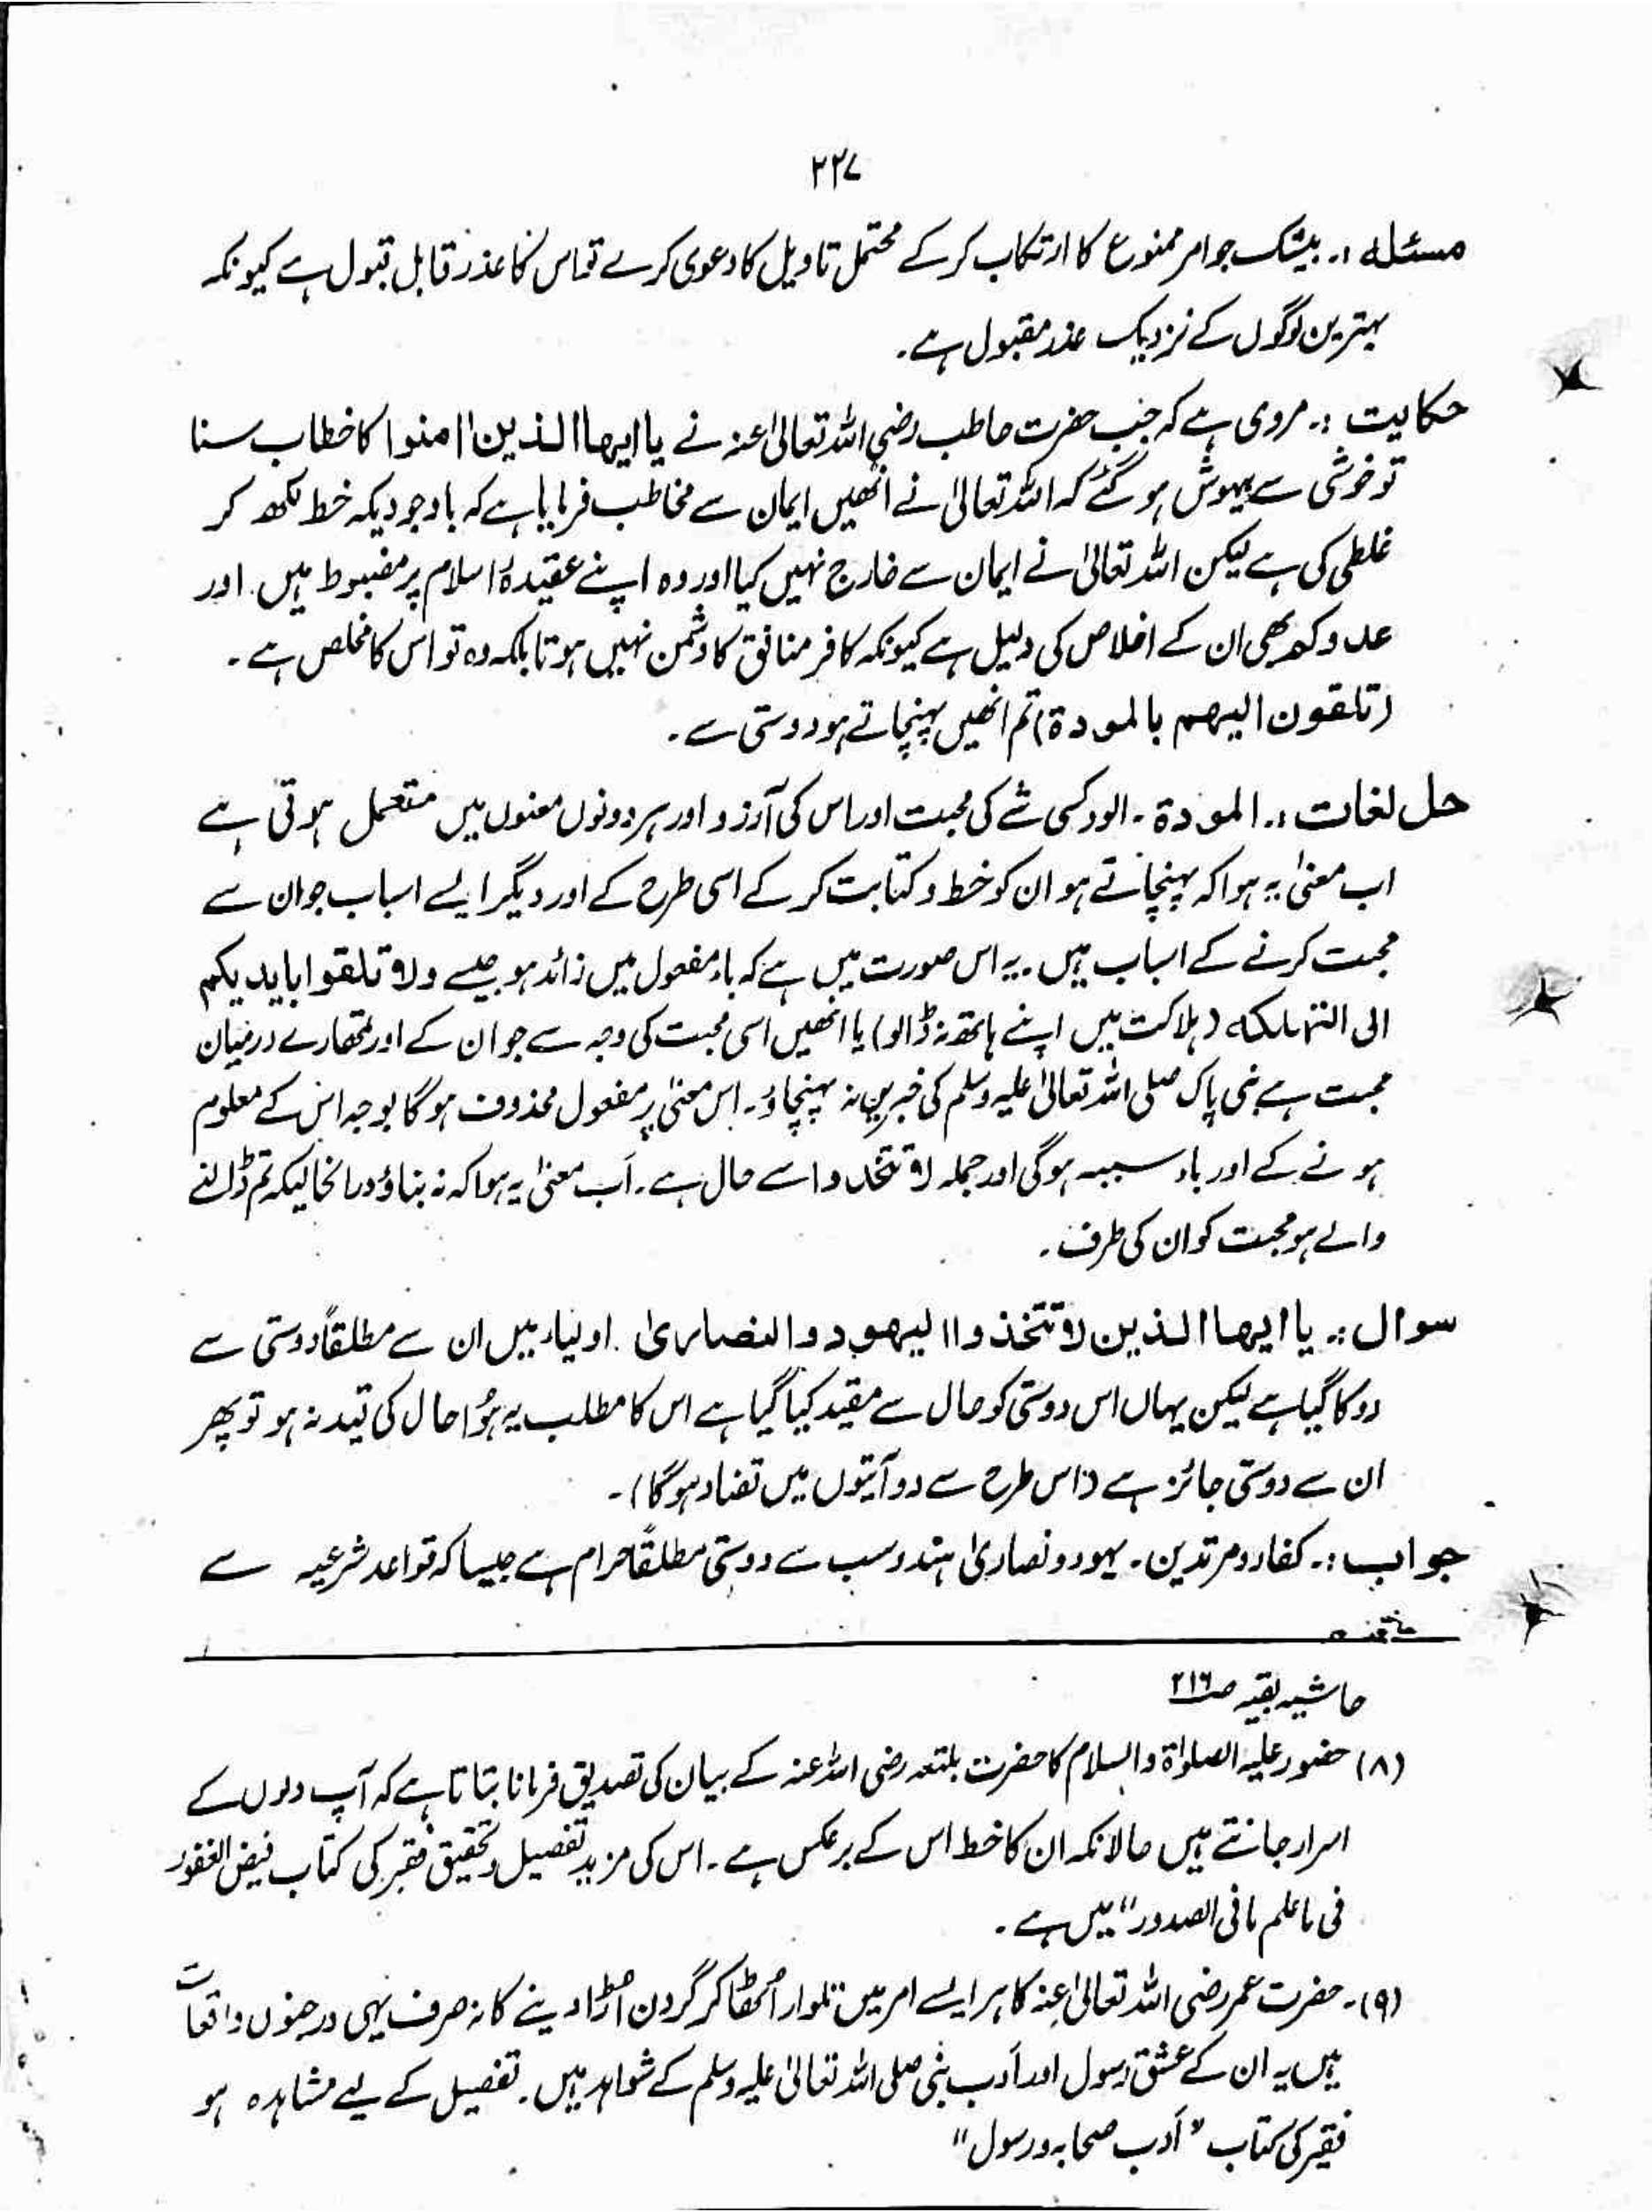 ۲۲۷
مسئلہ :۔ بیشک جو امر ممنوع کا ارتکاب کر کے محتمل تاویل کا دعوی کرے تو اس کا عذر قابل قبول ہے کیونکہ
بہترین لوگوں کے نزدیک عذر مقبول ہے۔
حکایت :۔ مروی ہے کہ جب حضرت حاطب رضی اللہ تعالیٰ عنہ نے یا ایھا الذین اٰمنوا کا خطاب سنا
تو خوشی سے بیہوش ہو گئے کہ اللہ تعالیٰ نے انھیں ایمان سے مخاطب فرمایا ہے کہ باوجودیکہ خط لکھ کر
غلطی کی ہے لیکن اللہ تعالیٰ نے ایمان سے خارج نہیں کیا اور وہ اپنے عقیدۂ اسلام پر مضبوط ہیں۔ اور
عدوکم بھی ان کے اخلاص کی دلیل ہے کیونکہ کافر منافق کا دشمن نہیں ہوتا بلکہ وہ تو اس کا مخلص ہے۔
(تلقون الیھم بالمودۃ) تم انھیں پہنچاتے ہو دوستی سے۔
حل لغات :۔ المودۃ۔ الود کسی شے کی محبت اور اس کی آرزو اور ہر دونوں معنوں میں متعمل ہوتی ہے
اب معنیٰ یہ ہوا کہ پہنچاتے ہو ان کو خط و کتابت کر کے اسی طرح کے اور دیگر ایسے اسباب جو ان سے
محبت کرنے کے اسباب ہیں۔ یہ اس صورت میں ہے کہ باء مفعول میں زائد ہو جیسے ولا تلقوا بایدیکم
الی التہلکہ (ہلاکت میں اپنے ہاتھ نہ ڈالو) یا انھیں اسی محبت کی وجہ سے جو ان کے اور تمھارے درمیان
محبت ہے نبی پاک صلی اللہ تعالیٰ علیہ وسلم کی خبریں نہ پہنچاؤ۔ اس معنیٰ پر مفعول محذوف ہو گا بوجہ اس کے معلوم
ہونے کے اور باء سببیہ ہوگی اور جملہ لا تتخذوا سے حال ہے۔ اب معنیٰ یہ ہوا کہ نہ بناؤ درانحالیکہ تم ڈالنے
والے ہو محبت کو ان کی طرف۔
سوال :۔ یا ایھا الذین لا تتخذوا الیھود والنصاریٰ۔ اولیاء میں ان سے مطلقاً دوستی سے
روکا گیا ہے لیکن یہاں اس دوستی کو حال سے مقید کیا گیا ہے اس کا مطلب یہ ہُوا حال کی قید نہ ہو تو پھر
ان سے دوستی جائز ہے (اس طرح سے دو آیتوں میں تضاد ہوگا)۔
جواب :۔ کفار و مرتدین۔ یہود و نصاریٰ ہندو سب سے دوستی مطلقاً حرام ہے جیسا کہ قواعد شرعیہ سے
حاشیہ بقیہ صـ۲۱۶
(۸) حضور علیہ الصلوٰۃ والسلام کا حضرت بلتعہ رضی اللہ عنہ کے بیان کی تصدیق فرمانا بتاتا ہے کہ آپ دلوں کے
اسرار جانتے ہیں حالانکہ ان کا خط اس کے برعکس ہے۔ اس کی مزید تفصیل و تحقیق فقیر کی کتاب فیض الغفور
فی ما علم ما فی الصدور" میں ہے۔
(۹)۔ حضرت عمر رضی اللہ تعالیٰ عنہ کا ہر ایسے امر میں تلوار اٹھا کر گردن اڑا دینے کا نہ صرف یہی درجنوں واقعات
ہیں یہ ان کے عشق رسول اور اَدب نبی صلی اللہ تعالیٰ علیہ وسلم کے شواہد ہیں۔ تفصیل کے لیے مشاہدہ ہو
فقیر کی کتاب "اَدب صحابہ و رسول"